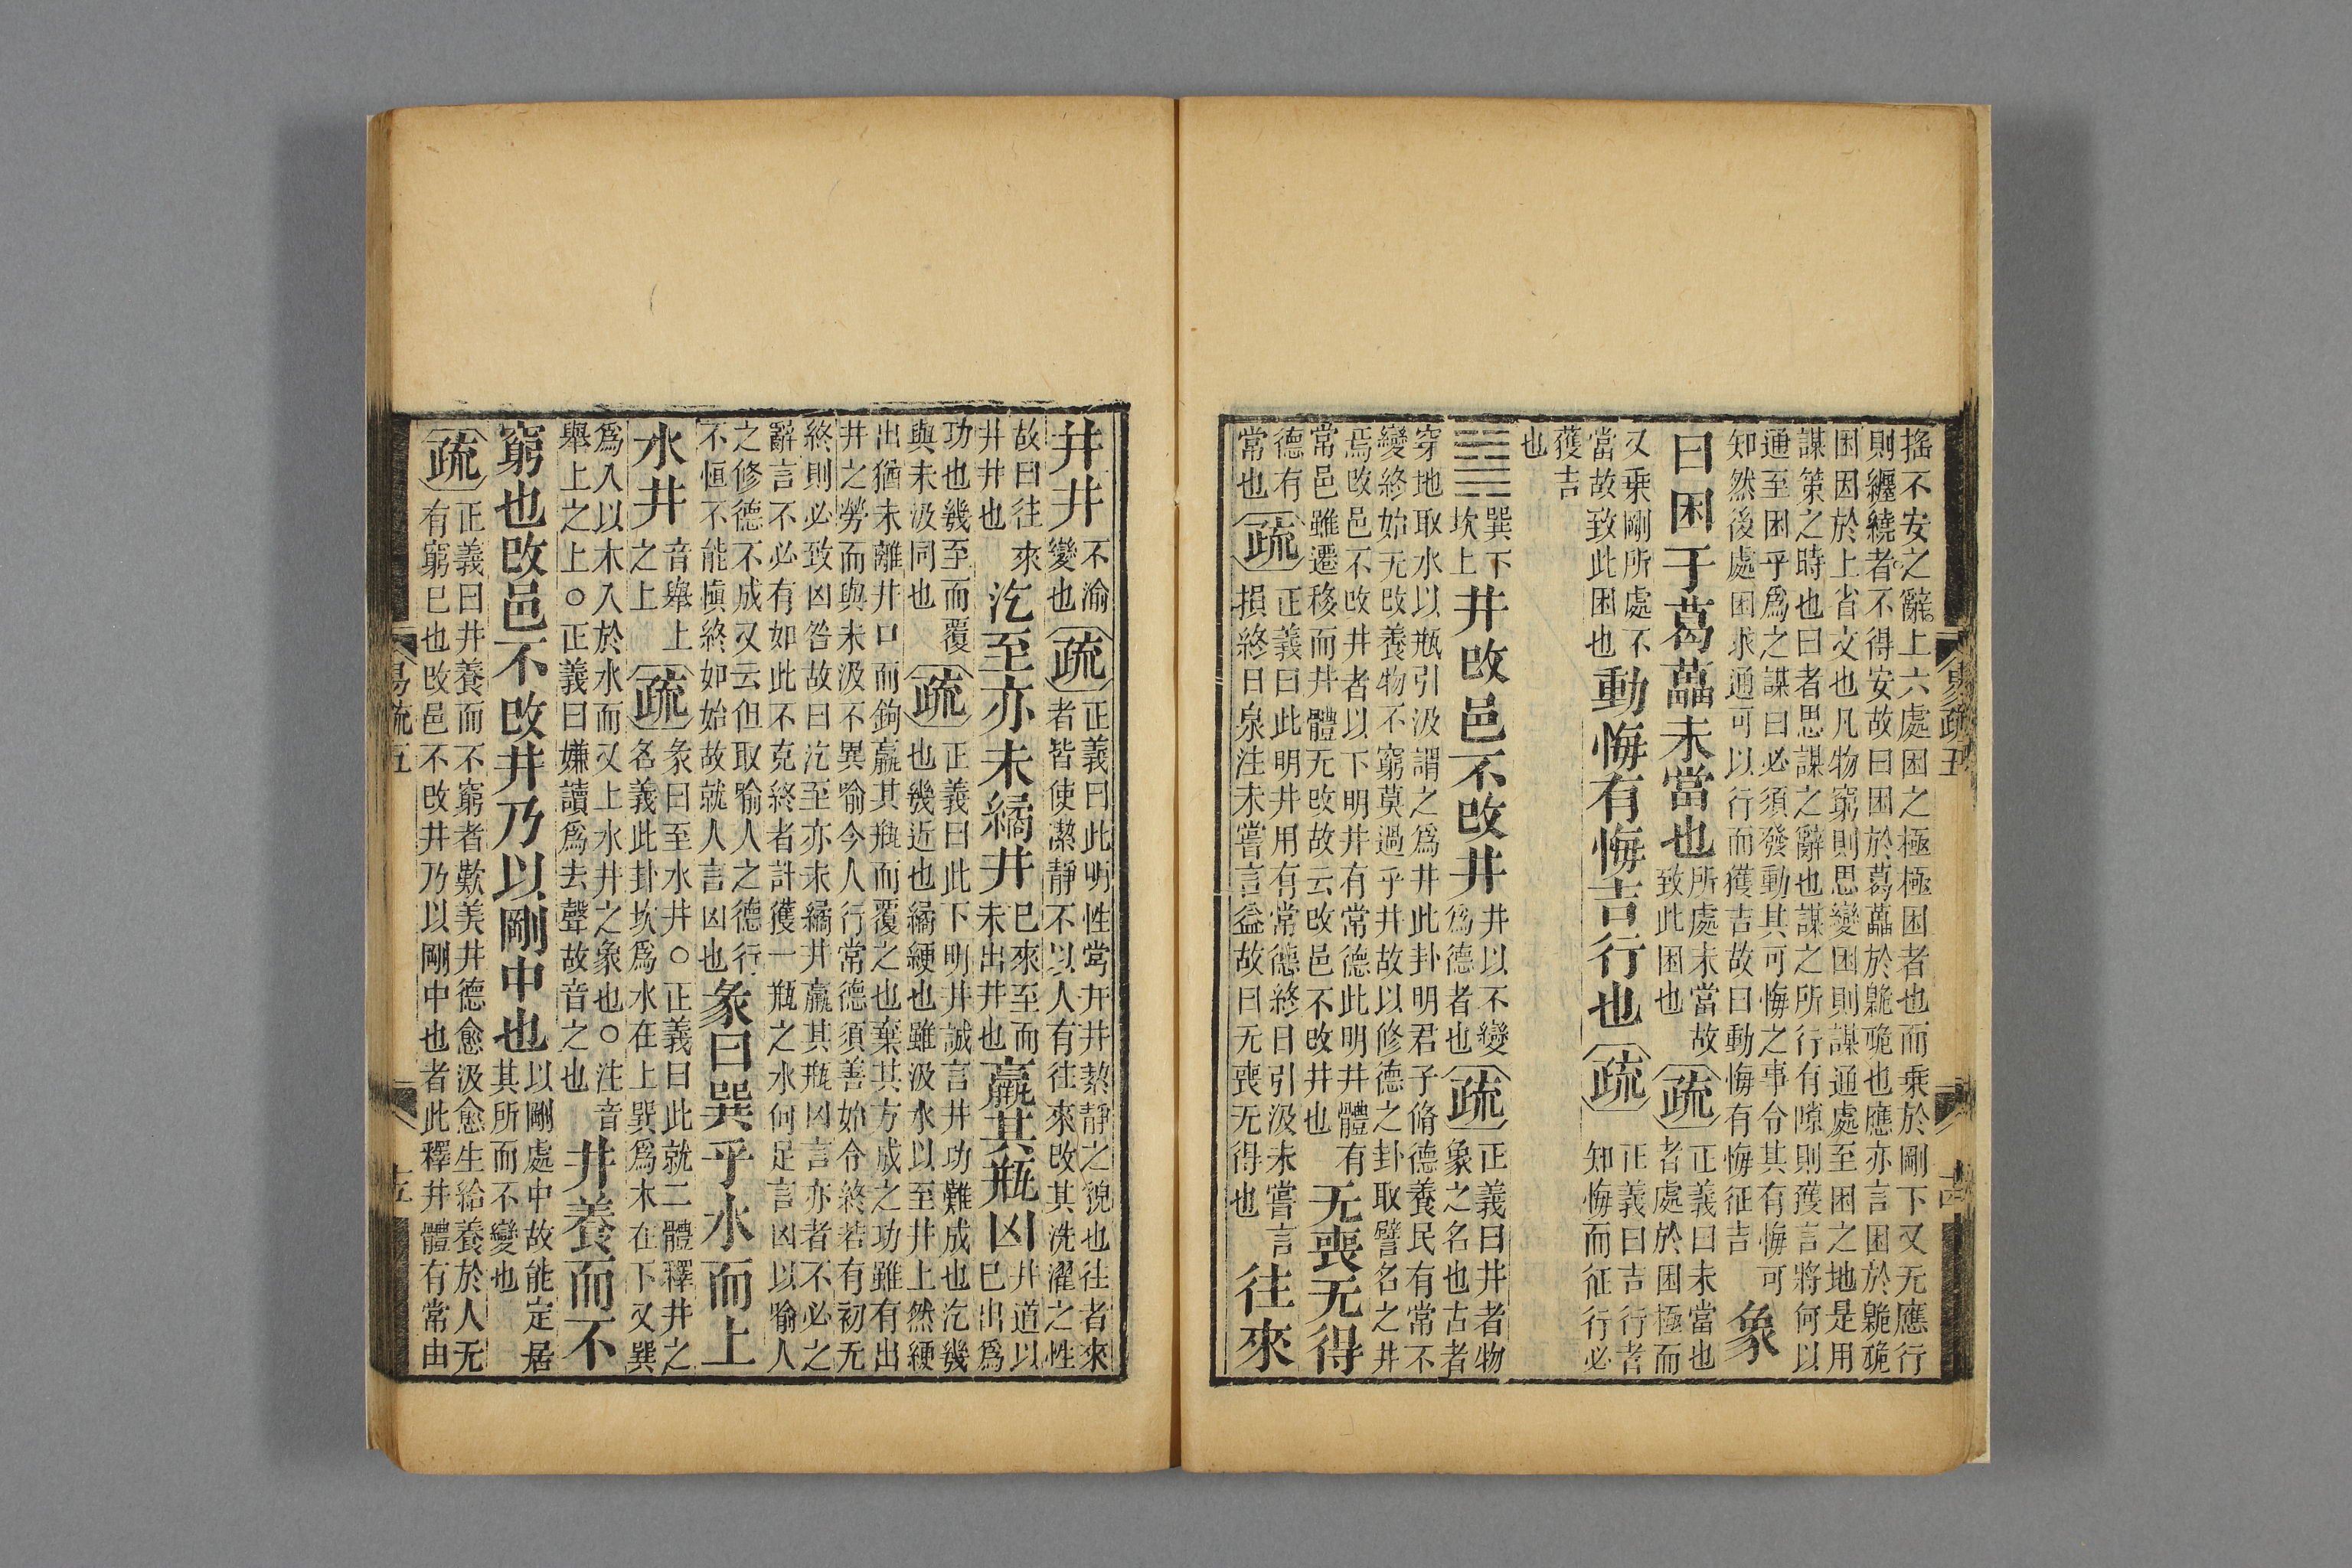 易疏五
十四
搖不安之辭上六處困之極極困者也而乗於剛下又无應行
則纒繞者不得安故曰困於葛藟於臲卼也應亦言困於臲卼
困因於上省文也凡物窮則思變困則謀通處至困之地是用
謀策之時也曰者思謀之辭也謀之所行有隙則獲言將何以
通至困乎爲之謀曰必須發動其可悔之事令其有悔可
知然後處困求通可以行而獲吉故曰動悔有悔征吉
象
曰困于葛藟未當也
所處未當故
致此困也
疏
正義曰未當也
者處於困極而
又乗剛所處不
當故致此困也
動悔有悔吉行也
疏
正義曰吉行者
知悔而征行必
獲吉
也
䷯
巽下
坎上
井改邑不改井
井以不變
爲德者也
疏
正義曰井者物
象之名也古者
穿地取水以瓶引汲謂之爲井此卦明君子脩德養民有常不
變終始无改養物不窮莫過乎井故以修德之卦取譬名之井
焉改邑不改井者以下明井有常德此明井體有
常邑雖遷移而井體无改故云改邑不改井也
无喪无得
德有
常也
疏
正義曰此明井用有常德終日引汲未嘗言
損終日泉注未嘗言益故曰无喪无得也
往來
井井
不渝
變也
疏
正義曰此明性常井井絜靜之貌也往者來
者皆使潔靜不以人有往來改其洗濯之性
故曰往來
井井也
汔至亦未繘井
巳來至而
未出井也
羸其瓶凶
井道以
巳出爲
功也幾至而覆
與未汲同也
疏
正義曰此下明井誠言井功難成也汔幾
也幾近也繘綆也雖汲水以至井上然綆
出猶未離井口而鉤羸其瓶而覆之也棄其方成之功雖有出
井之勞而與未汲不異喻今人行常德須善始令終若有初无
終則必致凶咎故曰汔至亦未繘井羸其瓶凶言亦者不必之
辭言不必有如此不克終者計獲一瓶之水何足言凶以喻人
之修德不成又云但取喻人之德行
不恒不能愼終如始故就人言凶也
彖曰巽乎水而上
水井
音舉上
之上
疏
彖曰至水井○正義曰此就二體釋井之
名義此卦坎爲水在上巽爲木在下又巽
爲入以木入於水而又上水井之象也○注音
舉上之上○正義曰嫌讀爲去聲故音之也
井養而不
窮也改邑不改井乃以剛中也
以剛處中故能定居
其所而不變也
疏
正義曰井養而不窮者歎美井德愈汲愈生給養於人无
有窮已也改邑不改井乃以剛中也者此釋井體有常由
易疏五
十五